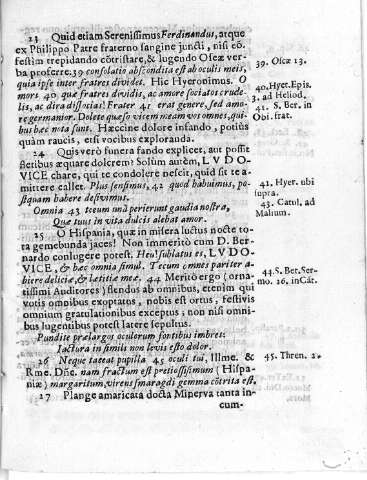 23 Quid etiam Serenissimus Ferdinandus, atque
ex Philippo Patre fraterno sangine juncti, nisi cō.
festim trepidando cōtristare, & lugendo Oseæ ver-
ba proferre. 39 consolatio abscondita est ab oculis meis,
quia ipse inter fratres dividet. Hic Hyeronimus. O
mors 40 quæ fratres dividis, ac amore sociatos crude-
lis, ac dira dissocias! Frater 41 erat genere, sed amo-
re germanior. Dolete quæso vicem meam vos omnes, qui-
bus hæc nota sunt. Hæccine dolore infando, potiùs
quàm raucis, etsi vocibus exploranda.
24 Quis verò funera fando explicet, aut possit
fletibus æquare dolorem? Solùm autèm, LVDO-
VICE chare, qui te condolere nescit, quid sit te a-
mittere callet. Plus sensimus, 42 quod habuimus, po-
stquam habere desivimus.
Omnia 43 tecum unà perierunt gaudia nostra,
Quæ tuus in vita dulcis alebat amor.
25 O Hispania, quæ in misera luctus nocte to-
ta gemebunda jaces! Non immeritò cum D. Ber-
nardo conlugere potest. Heu! sublatus es, LVDO-
VICE, & hæc omnia simul. Tecum omnes pariter a-
biere deliciæ, & lætitiæ meæ. 44 Meritò ergo (orna-
tissimi Auditores) flendus ab omnibus, etenim qui
votis omnibus exoptatus, nobis est ortus, festivis
omnium gratulationibus exceptus, non nisi omni-
bus lugentibus potest latere sepultus.
Pundite prælargos oculorum fontibus imbres:
Iactura in simili non levis esto dolor.
26 Neque taceat pupilla 45 oculi tui, Illme. &
Rme. Dñe. nam fractum est pretiosissimum (Hispa-
niæ) margaritum, virens smaragdi gemma cōtrita est,
27 Plange amaricata docta Minerva tanta in-
cum-
39. Oseæ 13.
40. Hyer. Epis.
3. ad Heliod.
41. S. Ber. in
Obi. frat.
42. Hyer. ubi
supra.
43. Catul. ad
Malium.
44. S. Ber. Ser-
mo. 26. in Cāt.
45. Thren. 2.